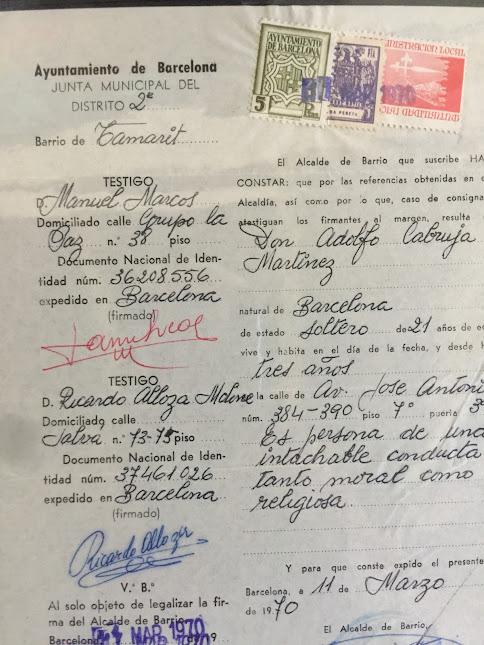 Ayuntamiento de Barcelona
JUNTA MUNICIPAL DEL
DISTRITO 2º
Barrio de Tamarit
TESTIGO
D. Manuel Marcos
Domiciliado calle Grupo la
Paz n.º 38 piso
Documento Nacional de Iden-
tidad núm. 36208.556
expedido en Barcelona
(firmado)
TESTIGO
D. Ricardo Alloza
Domiciliado calle
Salvá n.º 73-75 piso
Documento Nacional de Iden-
tidad núm. 37461.026
expedido en Barcelona
(firmado)
Ricardo Alloza
V.º B.º
Al solo objeto de legalizar la fir-
ma del Alcalde de Barrio
Barcelona MAR. 1970 de 19
AYUNTAMIENTO
DE BARCELONA
5 Pts.
PESETA
MINISTRACION LOCAL
MAR 1970
El Alcalde de Barrio que suscribe HA
CONSTAR: que por las referencias obtenidas en
Alcaldía, así como por lo que, caso de consigna
atestiguan los firmantes al margen, resulta
Don Adolfo Cabruja
Martínez
natural de Barcelona
de estado soltero de 21 años de e
vive y habita en el día de la fecha, y desde h
tres años
en la calle de Av. Jose Antoni
núm. 384-390 piso 7º puerta 3
Es persona de una
intachable conducta
tanto moral como
religiosa.
Y para que conste expido el presente
Barcelona, a 11 de Marzo
de 1970
El Alcalde de Barrio,